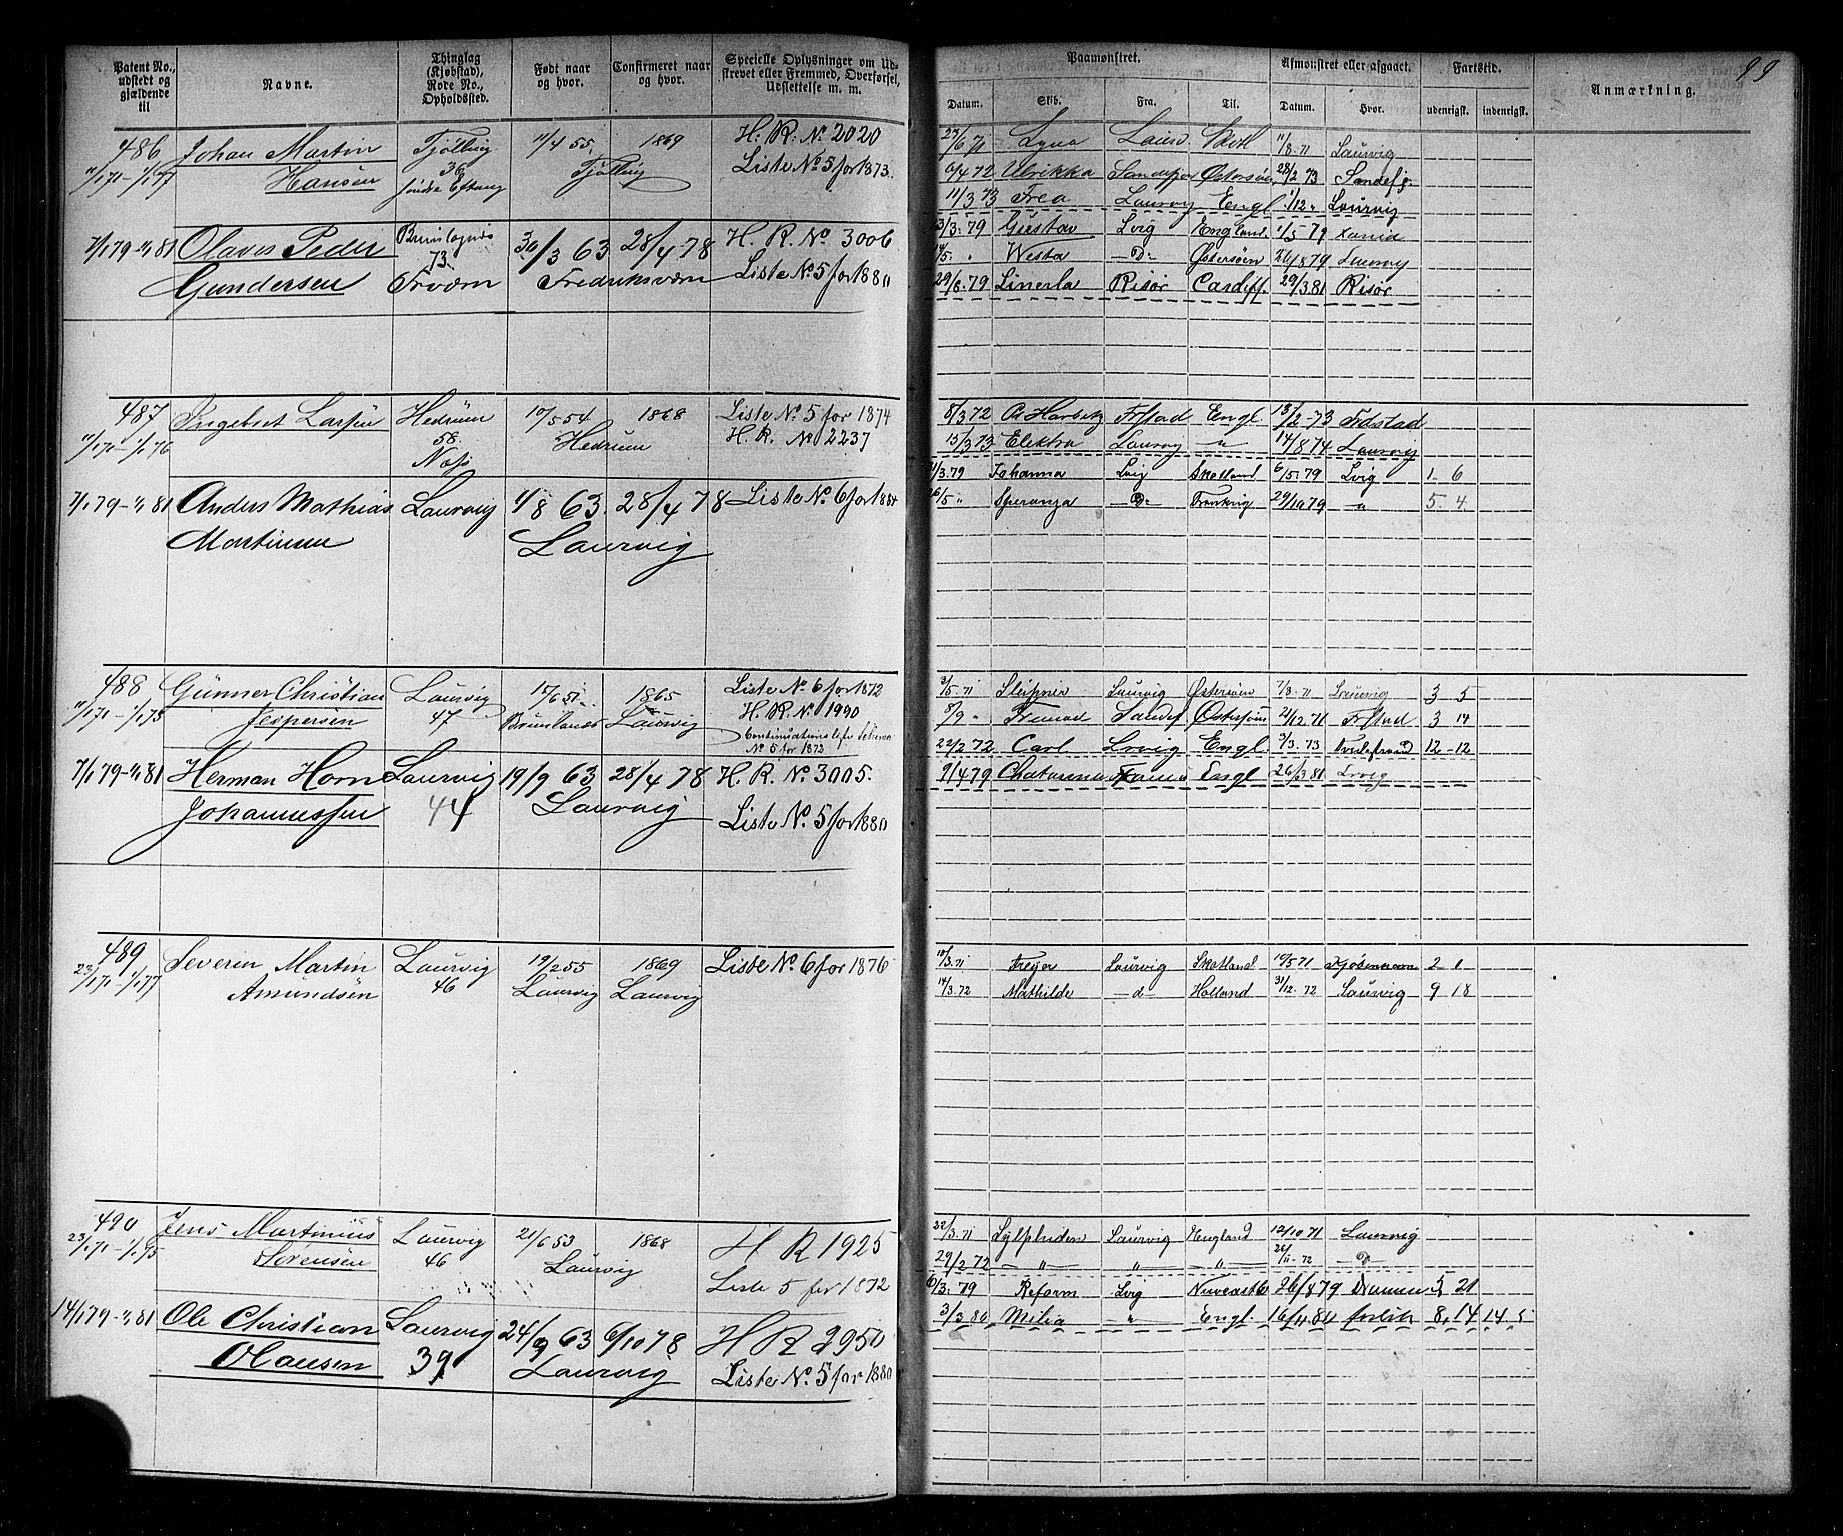 99
Patent No., udstedt og gjældende til
Navne.
Thinglag (Kjøbstad), Rode No., Opholdssted.
Født naar og hvor.
Confirmeret naar og hvor.
Specielle Oplysninger om Udskrevet eller Fremmed, Overførsel, Udslettelse m. m.
Paamønstret.
Datum. Skib. Fra. Til.
Afmønstret eller afgaaet.
Datum. Hvor.
Fartstid.
udenrigsk. indenrigsk.
Anmærkning.
486 Johan Martin Tjølling 11/4 55. 1869 H. R. No 2020
11/1 71 - 1/1 77 Hansen 36 Tjølling Liste No 5 for 1873.
7/1 79 - 1/1 81 Olaves Peder Brunlagnes 30/3 63 28/4 78 H. R. No 3006
Gundersen 73. Frværn Fredriksværn Liste No 5 for 1880
23/6 71 Lyna Laurv 11/8 71 Laurvig
6/4 72 Ulrikka Sandefjor Østersøen 28/2 73 Sandefj.
11/3 73 Frea Laurvig Engl 1/12 " Laurvig
13/3. 79 Gustav Lvig England 1/5 79
14/5. " Westa D: Østersøen 24/8 79 Laurvig
29/6. 79 Linerla Risør Cardiff 29/3 81 Risør
487 Ingebret Larsen Hedrum 10/5 54 1868 Liste No 5 for 1874
11/1 71 - 1/1 76 58. Hedrum H. R. No 2237
7/1 79 - 1/1 81 Anders Mathias Laurvig 1/8 63. 28/4 78 Liste No 6 for 1884
Martinsen Laurvig
8/3 72 Frstad Engl 13/2 73 Fdstad
15/3 73 Elektra Laurvig " 14/8 74 Laurvig
11/3. 79 Johanna Lvig Skotland 6/5. 79 Lvig 1 - 6
26/5 " Speranza D: Frankrig 29/10 79 " 5. 4
488 Gunner Christian Laurvig 15/6 51. 1865 Liste No 6 for 1872
11/1 71 - 1/1 75 Jespersen 47 Brunlanes Laurvig H. R. No 1990
No 5 for 1873
7/1 79 - 1/1 81 Herman Horn Laurvig 19/9 63 28/4 78 H. R. No. 3005.
Johannessen 44 Laurvig Liste No. 5 for 1880
3/5. 71 Sleipner Laurvig Østersøen 7/3. 71 Laurvig 3 5
8/9 " Fremad Sandef Østersøen 21/12 71 Frstad 3 14
22/2 72 Carl Lrvig Engl. 3/3. 73 12 - 12
9/4 79 Engl 26/3 81 Lrvig
489 Severin Martin Laurvig 19/2 55 1869 Liste No. 6 for 1876
23/1 71 - 1/1 77 Amundsen 46 Laurvig Laurvig
10/3. 71 Freyer Laurvig Skotland 10/5 71 2 1
14/3. 72 Mathilde d Holland 31/12. 72 Laurvig 9 18
490 Jens Martinius Laurvig 21/6 53 1868 H R 1925
23/1 71 - 1/1 75 Sørensen 46 Laurvig Liste 5 for 1872
14/1 79 - 1/1 81 Ole Christian Laurvig 24/9 63 6/10 78 H R 2950
Olausen 39 Laurvig Liste No. 5 for 1880
22/3. 71 Sylphiden Laurvig England 12/10 71 Laurvig
29/2 72 " " " 26/11 - 72 D
6/3. 79 Reform Lvig 26/8 79 Drammen 5 21
3/3 80 Milia " Engl. 16/11 80 8. 14 14 5